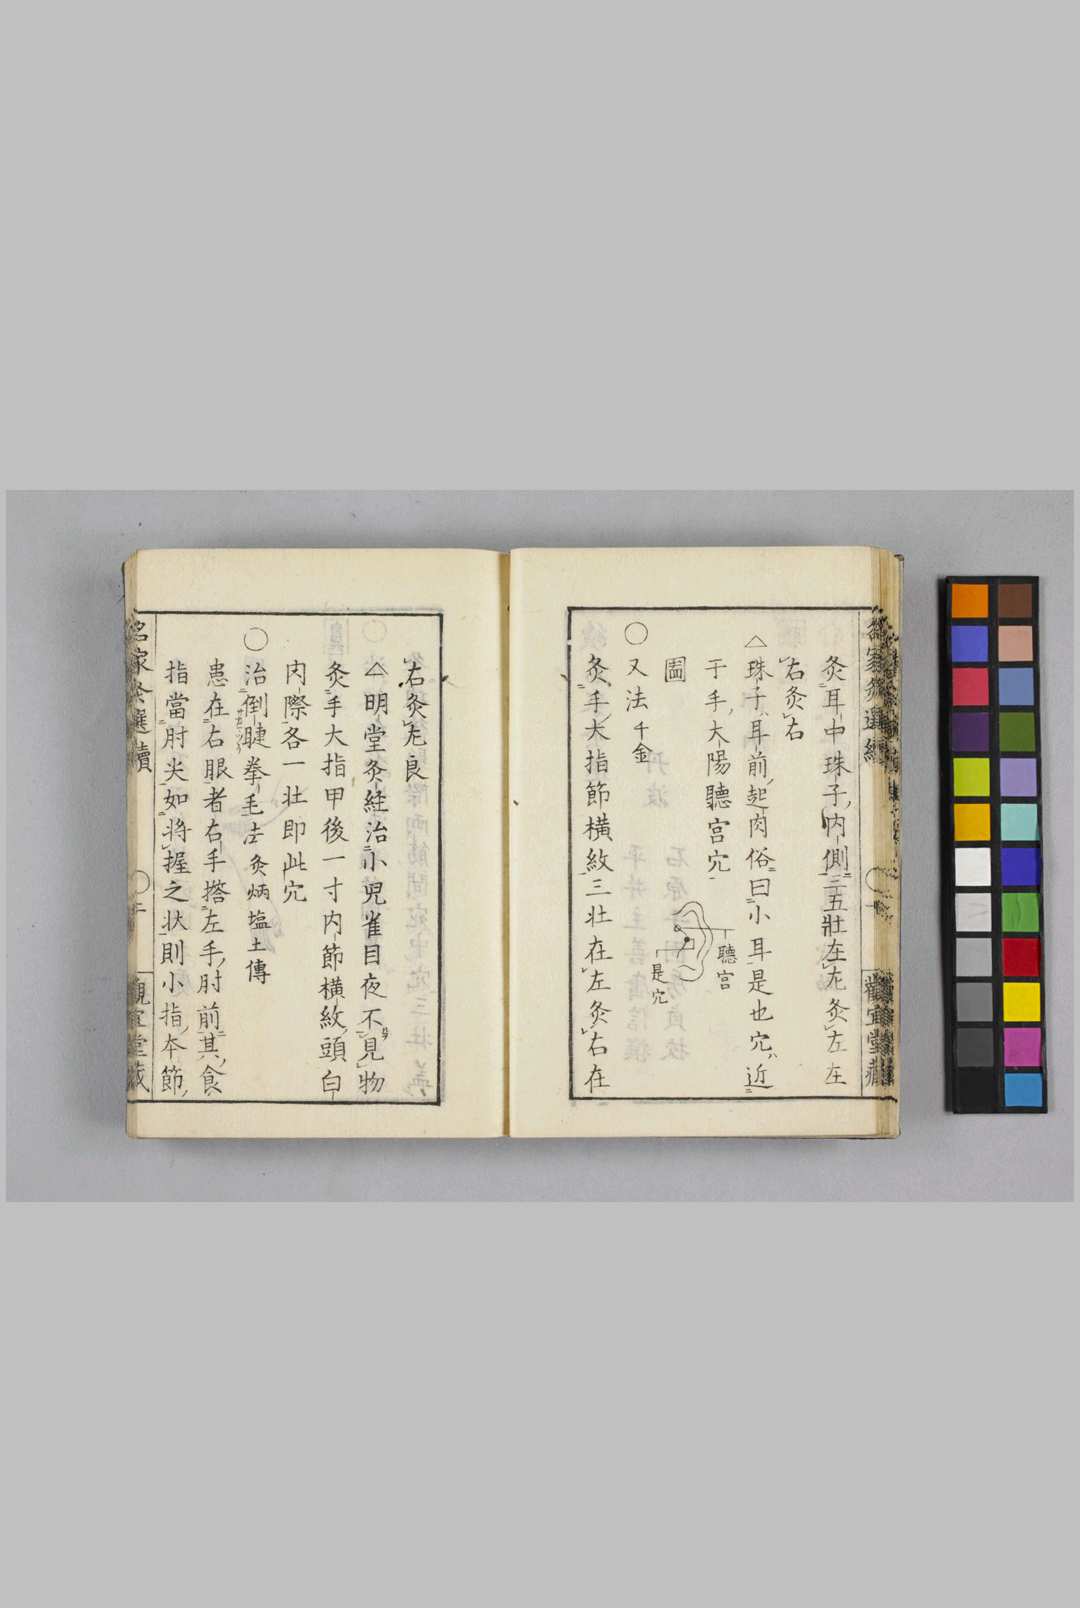 灸耳中珠子内側三五壯左尤灸左左
右灸右
△珠子耳前起肉俗曰小耳是也穴近
于手大陽聽宮穴
圖
聽宮
是穴
○又法千金
灸手大指節橫紋三壮在左灸右在
右灸左良
△明堂灸経治小兒雀目夜不見物
灸手大指甲後一寸内節横紋頭白
肉際各一壮即此穴
○治倒睫拳毛法灸焫塩土傳
患在右眼者右手撘左手肘前其食
指當肘尖如将握之状則小指夲節
名家灸選續